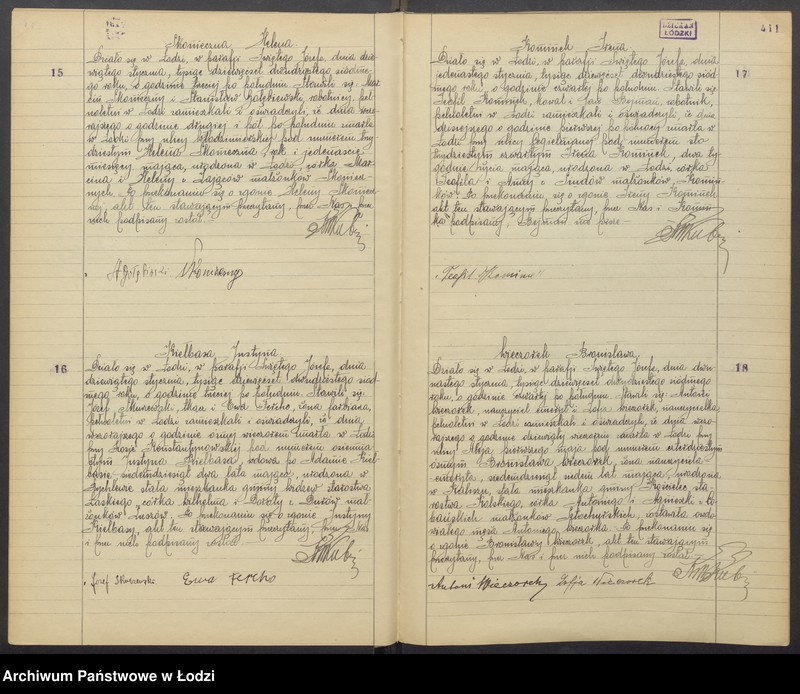 Skonieczna Helena
15
Działo się w Łodzi, w parafji Świętego Józefa, dnia dzie-
wiątego stycznia, tysiąc dziewięćset dwudziestego siódme-
go roku, o godzinie trzeciej po południu. Stawili się: Mar-
cin Skonieczny i Stanisław Gołębiewski, robotnicy, peł-
noletni w Łodzi zamieszkali i oświadczyli, iż dnia wczo-
rajszego o godzinie drugiej i pół po południu zmarła
w Łodzi przy ulicy pod numerem
Helena Skonieczna, rok i jedenaście
miesięcy mająca, urodzona w Łodzi, córka Mar-
cina i Heleny z małżonków Skoniecz-
nych. Po przekonaniu się o zgonie Heleny Skoniecz-
nej, akt ten stawającym przeczytany, przez Nas i przez
nich podpisany został.
Kielbasa Justyna
16
Działo się w Łodzi, w parafji Świętego Józefa, dnia
dziewiątego stycznia, tysiąc dziewięćset dwudziestego siód-
mego roku, o godzinie trzeciej po południu. Stawili się:
Józef i Ewa żona
pełnoletni w Łodzi zamieszkali i oświadczyli, iż dnia
wczorajszego o godzinie ósmej wieczorem zmarła w Łodzi
przy Konstantynowskiej pod numerem
Justyna Kielbasa, wdowa po Adamie Kieł-
basie, siedemdziesiąt dwa lata mająca, urodzona w
stała mieszkanka gminy starostwa
Łaskiego, córka Wilhelma i Doroty z mał-
żonków Po przekonaniu się o zgonie Justyny
Kielbasy, akt ten stawającym przeczytany, przez Nas
i przez nich podpisany został.
Józef Ewa Fercho
ŁÓDZKI
411
Kominek Irena
17
Działo się w Łodzi, w parafji Świętego Józefa, dnia
jedenastego stycznia, tysiąc dziewięćset dwudziestego siód-
mego roku, o godzinie czwartej po południu. Stawili się:
Teofil Kominek, kowal i Jan robotnik,
pełnoletni w Łodzi zamieszkali i oświadczyli, iż dnia
dzisiejszego o godzinie pierwszej po północy zmarła w
Łodzi przy ulicy Cegielnianej pod numerem sto
czwartym Irena Kominek, dwa ty-
godnie życia mająca, urodzona w Łodzi, córka
Teofila i z małżonków Komin-
ków. Po przekonaniu się o zgonie Ireny Kominek,
akt ten stawającym przeczytany, przez Nas i Komin-
ka podpisany,
Teofil Kominek
Wieczorek Bronisława
18
Działo się w Łodzi, w parafji Świętego Józefa, dnia dwu-
nastego stycznia, tysiąc dziewięćset dwudziestego siódmego
roku, o godzinie czwartej po południu. Stawili się: Antoni
Wieczorek, nauczyciel emeryt i Zofja Wieczorek, nauczycielka,
pełnoletni w Łodzi zamieszkali i oświadczyli, iż dnia wczo-
rajszego o godzinie dziewiątej wieczorem zmarła w Łodzi przy
ulicy Maja pierwszego pod numerem czterdziestym
ósmym Bronisława Wieczorek, żona nauczyciela
emeryta, siedemdziesiąt siedem lat mająca, urodzona
w Kaliszu, stała mieszkanka gminy sta-
rostwa Kolskiego, córka Antoniego i Agnieszki z
małżonków zostawiła owdo-
wiałego męża Antoniego Wieczorka. Po przekonaniu się
o zgonie Bronisławy Wieczorek, akt ten stawającym
przeczytany, przez Nas i przez nich podpisany został.
Antoni Wieczorek Zofja Wieczorek
Archiwum Państwowe w Łodzi